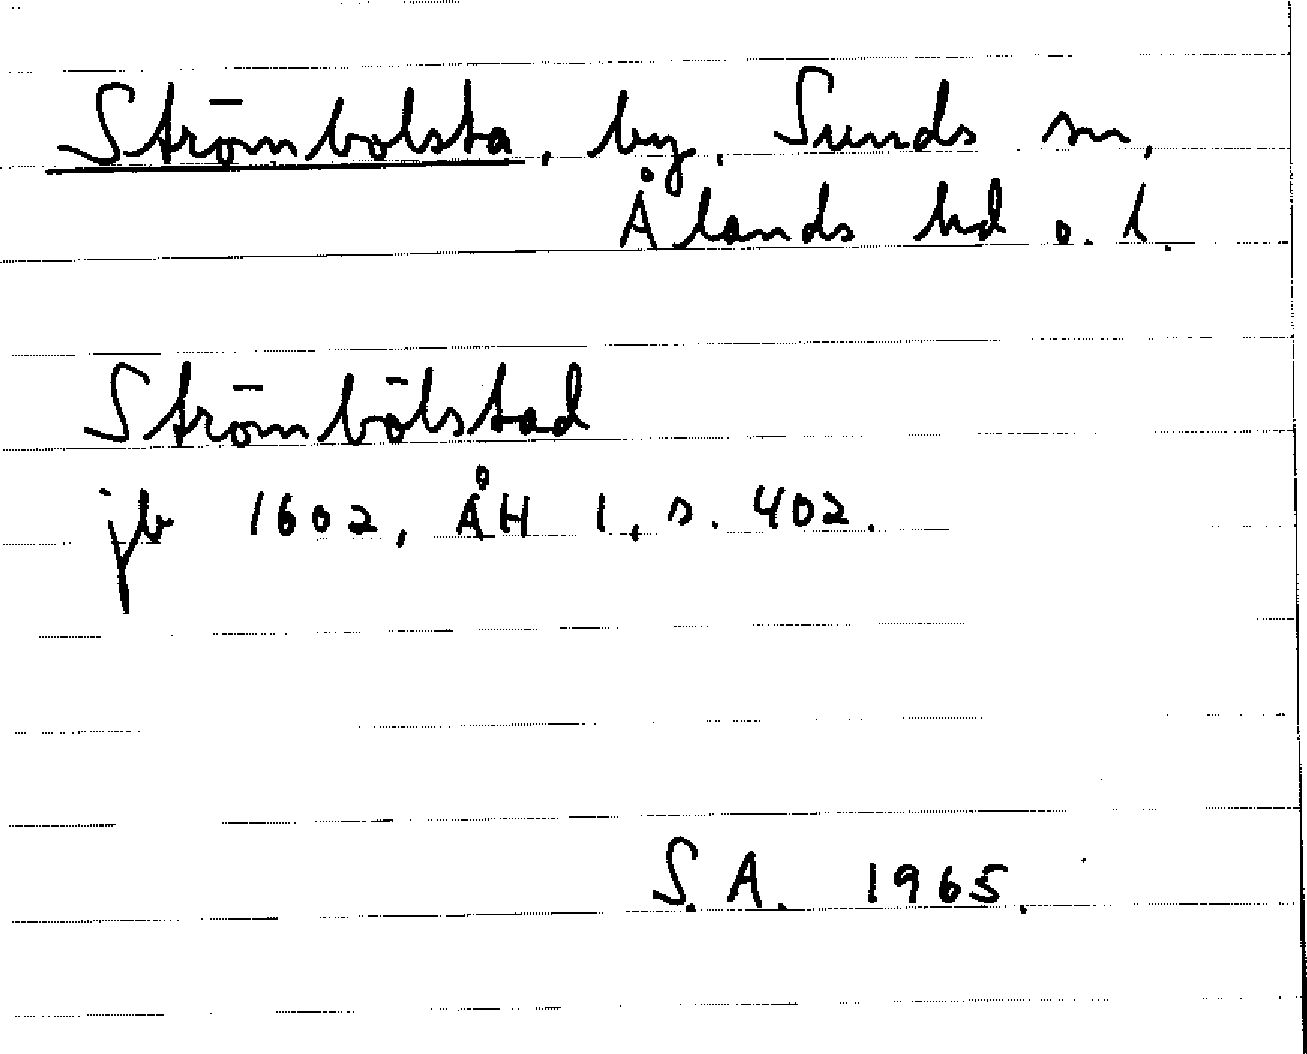 Strömbolsta, by, Sunds sn,
Ålands hd o. l.
Strömbölstad
jb 1602, ÅH 1, s. 402.
S.A. 1965.